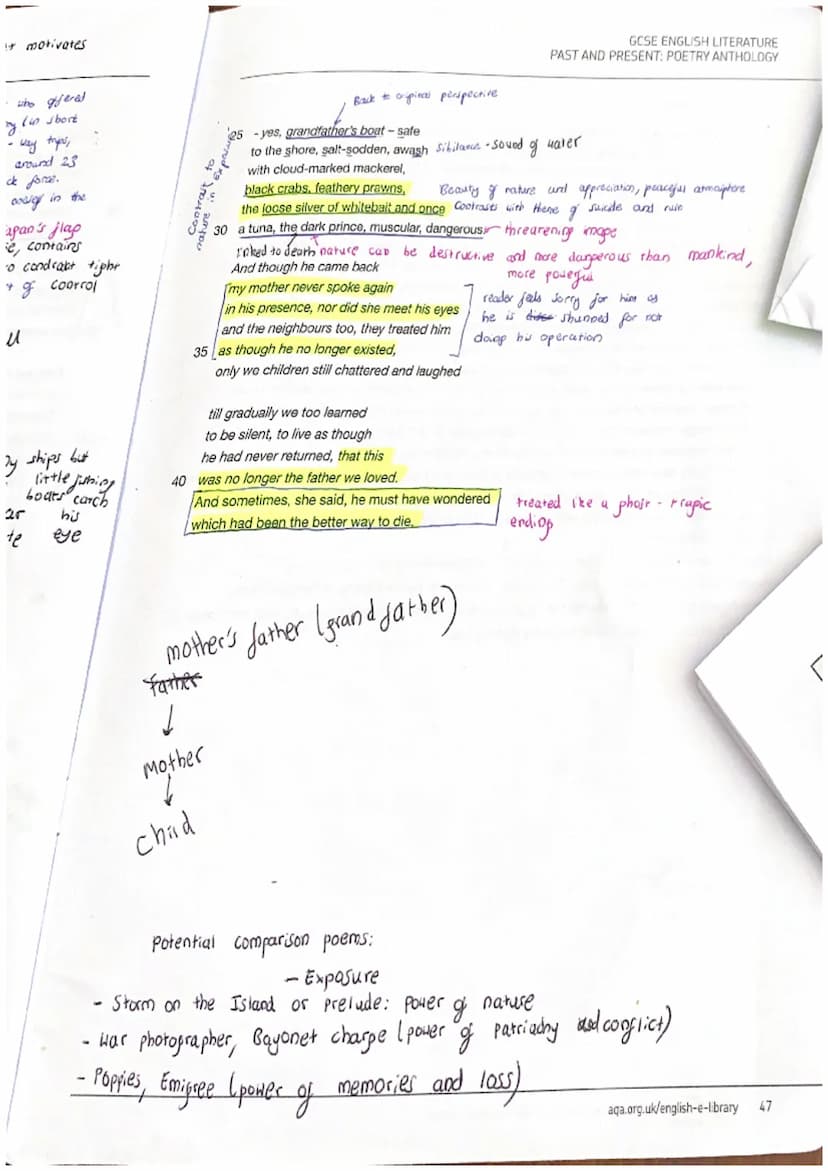 GCSE ENGLISH LITERATURE
PAST AND PRESENT: POETRY ANTHOLOGY
motivates
who offered
around 23
in the
Japan's flag
contains
ships but
little fishing
boats catch
his
eye
Back to original perspective
Contrast to
nature in exposure
25 - yes, grandfather's boat – safe
to the shore, salt-sodden, awash Sibilance - sound of water
with cloud-marked mackerel,
black crabs, feathery prawns, Beauty of nature and appreciation, peaceful atmosphere
the loose silver of whitebait and once Contrasts with theme of suicide and ruin
30 a tuna, the dark prince, muscular, dangerous. - threatening image
linked to death nature can be destructive and more dangerous than mankind,
more powerful
And though he came back
my mother never spoke again
in his presence, nor did she meet his eyes
and the neighbours too, they treated him
35 as though he no longer existed,
only we children still chattered and laughed
reader feels sorry for him as
he is shunned for not
doing his operation
till gradually we too learned
to be silent, to live as though
he had never returned, that this
40 was no longer the father we loved.
And sometimes, she said, he must have wondered
which had been the better way to die.
treated like a - tragic
ending
mother's father (grandfather)
father
mother
child
Potential comparison poems:
- Exposure
- Storm on the Island or Prelude: power of nature
- War photographer, Bayonet charge (power of patriachy and conflict)
- Poppies, Emigree (power of memories and loss)
aqa.org.uk/english-e-library 47